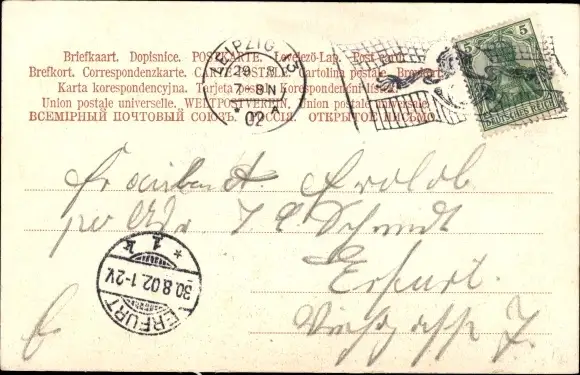 Briefkaart. Dopisnice. POSTKARTE. Levelező-Lap. Post card
Brefkort. Correspondenzkarte. CARTE POSTALE. Cartolina postale. Brevkort
Karta korespondencyjna. Tarjeta postal. Korespondenční lístek.
Union postale universelle. WELTPOSTVEREIN. Union postale universale.
ВСЕМІРНЫЙ ПОЧТОВЫЙ СОЮЗЪ. РОССІЯ. ОТКРЫТОЕ ПИСЬМО.
LEIPZIG 13
29 8
7-8N
02
5 5
DEUTSCHES REICH
per Adr. J C Schmidt
Erfurt.
ERFURT
30.8.02.1-2V.
* 1 k